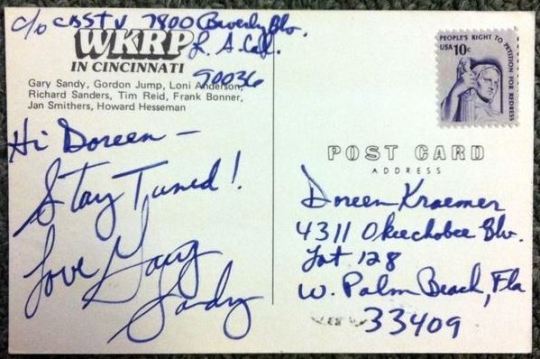 c/o CBSTV 7800 Beverly Blv.
L. A. Cal.
90036
WKRP
IN CINCINNATI
Gary Sandy, Gordon Jump, Loni Anderson,
Richard Sanders, Tim Reid, Frank Bonner,
Jan Smithers, Howard Hesseman
Hi Doreen —
Stay Tuned!
Love Gary
Sandy
PEOPLE'S RIGHT TO PETITION FOR REDRESS
USA 10c
POST CARD
ADDRESS
Doreen Kraemer
4311 Okeechobee Blv.
Lot 128
W. Palm Beach, Fla
33409